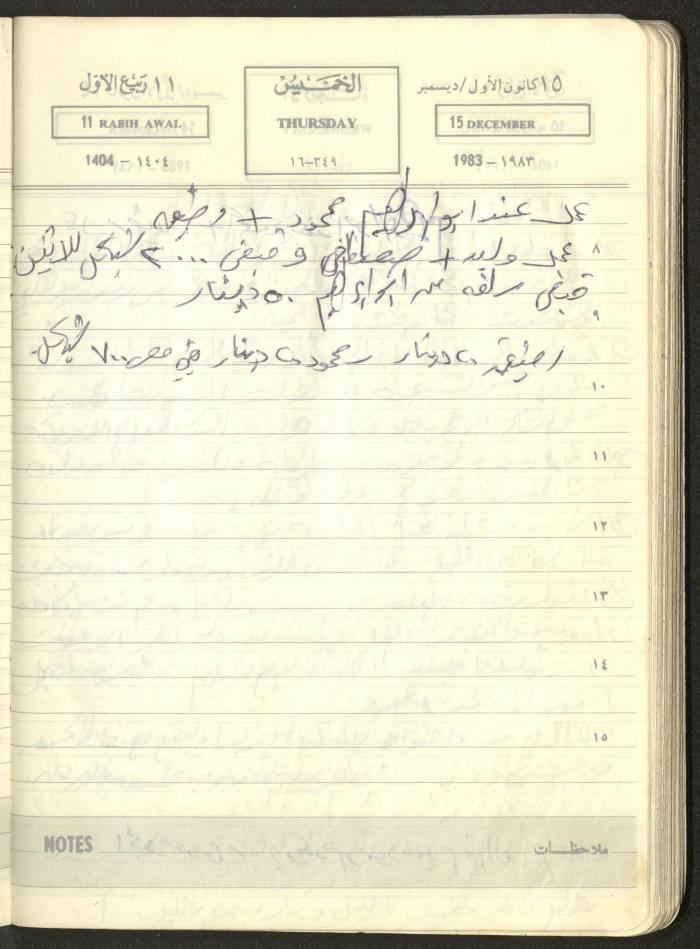 ١١ ربيع الأول الخميس ١٥ كانون الأول/ديسمبر
11 RABIH AWAL THURSDAY 15 DECEMBER
1404 – ١٤٠٤ ١٦–٣٤٩ 1983 – ١٩٨٣
عمل عند ابو ابراهيم محمود +
٨
عمل وليد + مصطفى و قبض ٢٠٠٠ شيكل للاثنين
قبض سلفه من ابراهيم ٥٠ دينار
٩
٢٠ دينار محمود ٢٠ دينار ٧٠٠ شيكل
١٠
١١
١٢
١٣
١٤
١٥
NOTES ملاحظات